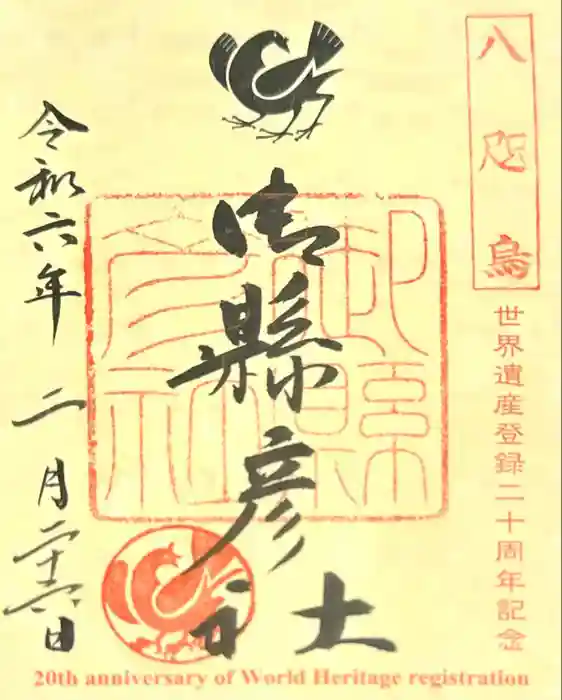 八咫烏
世界遺産登録二十周年記念
御縣彦社
御縣彦社
令和六年 二月二十六日
20th anniversary of World Heritage registration